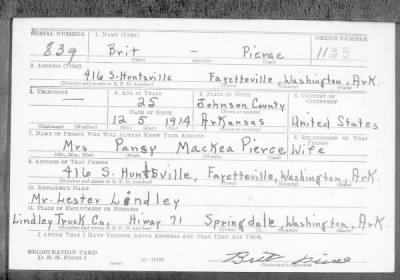 SERIAL NUMBER 1. NAME (Print) ORDER NUMBER
839 Brit — Pierce 1123
(First) (Middle) (Last)
2. ADDRESS (Print)
416 S. Huntsville Fayetteville, Washington, Ark.
(Number and street or R. F. D. number) (Town) (County) (State)
3. TELEPHONE 4. AGE IN YEARS 5. PLACE OF BIRTH 6. COUNTRY OF CITIZENSHIP
— 25 Johnson County
DATE OF BIRTH (Town or county)
12 5 1914 Arkansas United States
(Exchange) (Number) (Mo.) (Day) (Yr.) (State or country)
7. NAME OF PERSON WHO WILL ALWAYS KNOW YOUR ADDRESS 8. RELATIONSHIP OF THAT PERSON
Mrs Pansy Mackea Pierce Wife
(Mr., Mrs., Miss) (First) (Middle) (Last)
9. ADDRESS OF THAT PERSON
416 S. Huntsville, Fayetteville, Washington, Ark.
(Number and street or R. F. D. number) (Town) (County) (State)
10. EMPLOYER'S NAME
Mr. Lester Lindley
11. PLACE OF EMPLOYMENT OR BUSINESS
Lindley Truck Co., Hiway 71 Springdale, Washington, Ark.
(Number and street or R. F. D. number) (Town) (County) (State)
I AFFIRM THAT I HAVE VERIFIED ABOVE ANSWERS AND THAT THEY ARE TRUE.
REGISTRATION CARD
D. S. S. Form 1 Brit Pierce
(Registrant's signature)